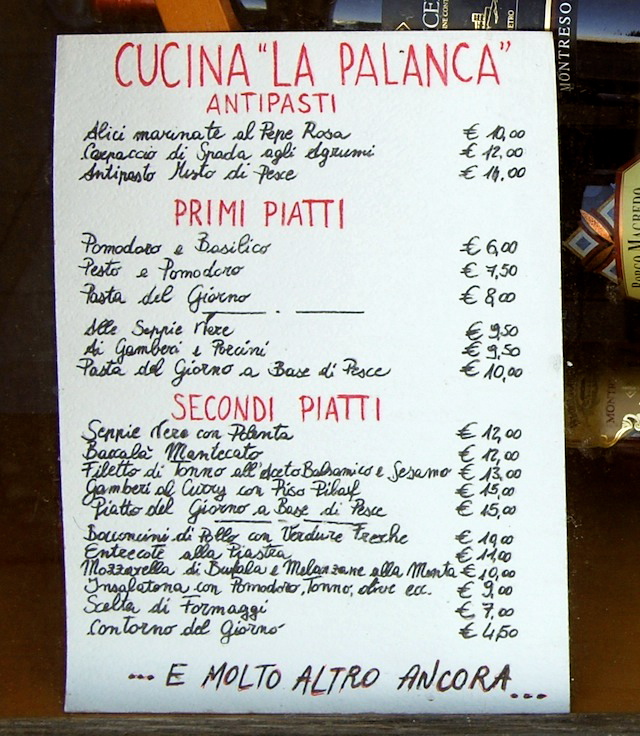 CUCINA "LA PALANCA"
ANTIPASTI
Alici marinate al Pepe Rosa € 10,00
Carpaccio di Spada agli Agrumi € 12,00
Antipasto Misto di Pesce € 14,00
PRIMI PIATTI
Pomodoro e Basilico € 6,00
Pesto e Pomodoro € 7,50
Pasta del Giorno € 8,00
Alle Seppie Nere € 9,50
Ai Gamberi e Porcini € 9,50
Pasta del Giorno a Base di Pesce € 10,00
SECONDI PIATTI
Seppie Nere con Polenta € 12,00
Baccalà Mantecato € 12,00
Filetto di Tonno all'aceto Balsamico e Sesamo € 13,00
Gamberi al Curry con Riso Pilaf € 15,00
Piatto del Giorno a Base di Pesce € 15,00
Bocconcini di Pollo con Verdure Fresche
Entrecote alla Piastra € 11,00
Mozzarella di Bufala e Melanzane alla Menta € 10,00
Insalatona con Pomodoro, Tonno, olive ecc. € 9,00
Scelta di Formaggi € 7,00
Contorno del Giorno € 4,50
... E MOLTO ALTRO ANCORA...
MONTRESO